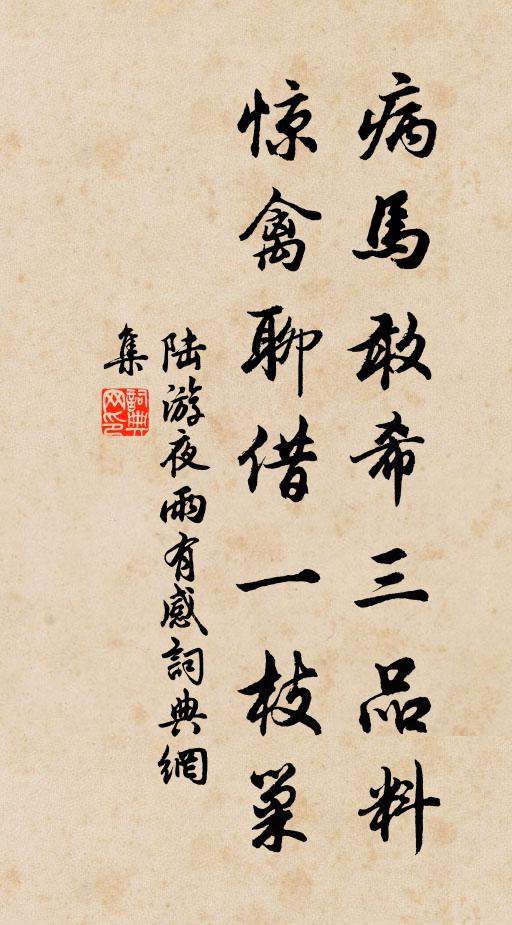 病馬敢希三品料
惊禽聊借一枝巢
陆游夜雨有感詞典網
集
詞典
网印